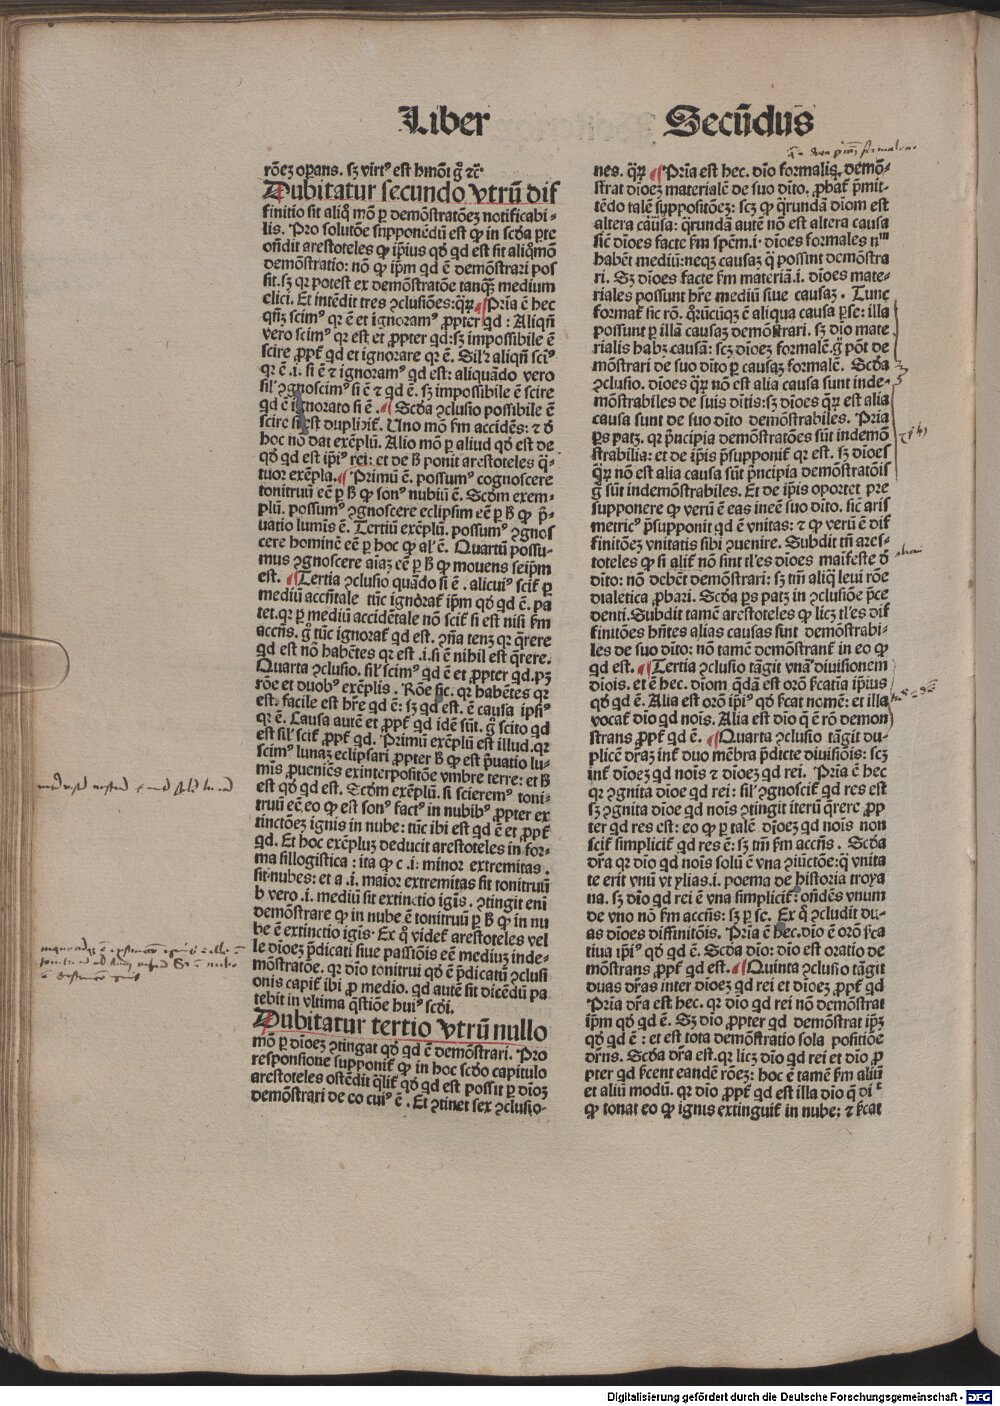 Liber Secūdus
rōez opans. sz virt⁹ est hmōi gͦ ⁊c̄
Dubitatur secundo vtrū dif
finitio sit aliq̄ mō ꝑ demōstratōez notificabi-
lis. Pro solutōe supponēdū est ꝙ in scd̄a ꝑte
oñdit arestoteles ꝙ ip̄ius qd̄ qd est sit aliq̄mō
demōstratio: nō ꝙ ip̄m qd ē demōstrari pos
sit. sz qꝛ potest ex demōstratōe tanqꝫ medium
elici. Et intēdit tres ꝯclusiōes: qꝝ Pria ē hec
qñz scim⁹ qꝛ ē et ignoram⁹ ꝓpter qd : Aliqñ
vero scim⁹ qꝛ est et ꝓpter qd: sz impossibile ē
scire ꝓpt̄ qd et ignorare qꝛ ē. Sil'r aliqñ sci⁹
qꝛ ē .i. si ē ⁊ ignoram⁹ qd est: aliquādo vero
sil' ꝯgnoscim⁹ si ē ⁊ qd ē. sz impossibile ē scire
qd ē ignorato si ē . Scd̄a ꝯclusio possibile ē
scire si est duplicit̄. Uno mō fm accidēs: ⁊ ō
hoc nō dat exēplū. Alio mō ꝑ aliud qd̄ est de
qd̄ qd est ip̄i⁹ rei: et de ꝭ ponit arestoteles q̄-
tuor exēpla. Primū ē. possum⁹ cognoscere
tonitruū eē ꝑ ꝭ ꝙ son⁹ nubiū ē. Scd̄m exem-
plū. possum⁹ ꝯgnoscere eclipsim eē ꝑ ꝭ ꝙ p̄-
uatio lumīs ē. Tertiū exēplū. possum⁹ ꝯgnos
cere hominē eē ꝑ hoc ꝙ al' ē. Quartū possu-
mus ꝯgnoscere aīaz eē ꝑ ꝭ ꝙ mouens seip̄m
est. Tertia ꝯclusio quādo si ē . alicui⁹ scit̄ ꝑ
mediū accñtale tūc ignorat̄ ip̄m qd̄ qd ē. pa
tet. qꝛ ꝑ mediū accidētale nō scit̄ si est nisi fm
accñs. gͦ tūc ignorat̄ qd est. ꝯña tenz qꝛ q̄rere
qd est nō habētes qꝛ est .i. si ē nihil est q̄rere.
Quarta ꝯclusio. sil'r scim⁹ qd ē et ꝓpter qd. pz
rōe et duob⁹ exēplis . Rōe sic. qꝛ habētes qꝛ
est. facile est hr̄e qd ē: sz qd est. ē causa ipsi⁹
qꝛ ē. Causa autē et ꝓpt̄ qd idē sūt. gͦ scito qd
est sil' scit̄ ꝓpt̄ qd. Primū exēplū est illud. qꝛ
scim⁹ lunaz eclipsari ꝓpter ꝭ ꝙ est p̄uatio lu-
mīs ꝓueniēs ex interpositōe vmbre terre: et ꝭ
est qd̄ qd est. Scd̄m exēplū. si scirem⁹ toni-
truū eē eo ꝙ est son⁹ fact⁹ in nubib⁹ ꝓpter ex
tinctōez ignis in nube: tūc ibi est qd ē et ꝓpt̄
qd. Et hoc exēpluz deducit arestoteles in for-
ma sillogistica : ita ꝙ c .i. minor extremitas .
sit nubes: et a .i. maior extremitas sit tonitruū
b vero .i. mediū sit extinctio igīs. ꝯtingit enī
demōstrare ꝙ in nube ē tonitruū ꝑ ꝭ ꝙ in nu
be ē extinctio igīs. Ex q̄ videt̄ arestoteles vel
le dioez p̄dicati siue passiōis eē mediuz inde-
mōstratōe. qꝛ dio tonitrui qd̄ ē p̄dicatū ꝯclusi
onis capit̄ ibi ꝓ medio. qd autē sit dicēdū pa
tebit in vltima q̄stiōe hui⁹ scd̄i.
Dubitatur tertio vtrū nullo
mō ꝑ dioez ꝯtingat qd̄ qd ē demōstrari. Pro
responsione supponit̄ ꝙ in hoc scd̄o capitulo
arestoteles ostēdit q̄lit̄ qd̄ qd est possit ꝑ dioz
demōstrari de eo cui⁹ ē . Et ꝯtinet sex ꝯclusio-
nes. qꝝ Pria est hec. dio formaliq. demō-
strat dioez materialē de suo dito. ꝓbat̄ p̄mit-
tēdo talē suppositōez: scz ꝙ q̄rundā diom est
altera causa: q̄rundā autē nō est altera causa
sic̄ dioes facte fm spēm .i. dioes formales nᵐ
habēt mediū: neqꝫ causaz q̄ possint demōstra
ri. Sz dioes facte fm materiā .i. dioes mate-
riales possunt hr̄e mediū siue causaz . Tunc
format̄ sic rō. q̄rūcūqꝫ ē aliqua causa ꝑ se: illa
possunt ꝑ illā causaz demōstrari. sz dio mate
rialis habz causā: scz dioez formalē. gͦ pōt de
mōstrari de suo dito ꝑ causaz formalē. Scd̄a
ꝯclusio. dioes qꝝ nō est alia causa sunt inde-
mōstrabiles de suis ditis: sz dioes qꝝ est alia
causa sunt de suo dito demōstrabiles. Pria
ꝑs patz. qꝛ p̄ncipia demōstratōes sūt indemō
strabilia: et de ip̄is p̄supponit̄ qꝛ est. sz dioes
qꝝ nō est alia causa sūt p̄ncipia demōstratōis
gͦ sūt indemōstrabiles. Et de ip̄is oportet pre
supponere ꝙ verū ē eas ineē suo dito. sic̄ aris
metric⁹ p̄supponit qd ē vnitas: ⁊ ꝙ verū ē dif
finitōez vnitatis sibi ꝯuenire. Subdit tñ ares-
toteles ꝙ si alit̄ nō sint tl'es dioes maīfeste ō
dito: nō debēt demōstrari: sz tm̄ aliq̄ leui rōe
dialetica ꝓbari. Scd̄a ꝑs patz in ꝯclusiōe p̄ce
denti. Subdit tamē arestoteles ꝙ licz tl'es dif
finitōes hñtes alias causas sint demōstrabi-
les de suo dito: nō tamē demōstrant̄ in eo ꝙ
qd est. Tertia ꝯclusio tāgit vnā diuisionem
diois. et ē hec. diom q̄dā est orō ſcatiā ip̄ius
qd̄ qd ē. Alia est orō ip̄i⁹ qd̄ ſcat nomē: et illa
vocat̄ dio qd nois. Alia est dio q̄ ē rō demon
strans ꝓpt̄ qd ē. Quarta ꝯclusio tāgit du-
plicē dr̄az int̄ duo mēbra p̄dicte diuisiōis: scz
int̄ dioez qd nois ⁊ dioez qd rei. Pria ē hec
qꝛ ꝯgnita dioe qd rei: sil' ꝯgnoscit̄ qd res est
sz ꝯgnita dioe qd nois ꝯtingit iterū q̄rere ꝓp
ter qd res est: eo ꝙ ꝑ talē dioez qd nois non
scit̄ simplicit̄ qd res ē: sz tm̄ fm accñs . Scd̄a
dr̄a qꝛ dio qd nois solū ē vna ꝯiūctōe: q̄ vnita
te erit vnū vt ylias .i. poema de historia troya
na. sz dio qd rei ē vna simplicit̄: ondēs vnum
de vno nō fm accñs: sz ꝑ se. Ex q̄ ꝯcludit du-
as dioes diffinitōis. Pria ē hec. dio ē orō ſca
tiua ip̄i⁹ qd̄ qd ē. Scd̄a dio: dio est oratio de
mōstrans ꝓpt̄ qd est. Quinta ꝯclusio tāgit
duas dr̄as inter dioez qd rei et dioez ꝓpt̄ qd
Pria dr̄a est hec. qꝛ dio qd rei nō demōstrat
ip̄m qd̄ qd ē. Sz dio ꝓpter qd demōstrat ip̄z
qd̄ qd ē : et est tota demōstratio sola positiōe
dr̄ns. Scd̄a dr̄a est. qꝛ licz dio qd rei et dio ꝓ
pter qd ſcent eandē rōez: hoc ē tamē fm aliū
et aliū modū. qꝛ dio ꝓpt̄ qd est illa dio q̄ di c̄
ꝙ tonat eo ꝙ ignis extinguit̄ in nube: ⁊ ſcat
Digitalisierung gefördert durch die Deutsche Forschungsgemeinschaft - DFG